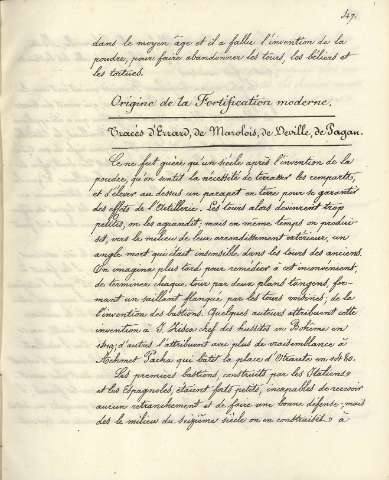 47.
dans le moyen âge et il a fallu l'invention de la
poudre, pour faire abandonner les tours, les béliers et
les tortues.
Origine de la Fortification moderne.
Tracés d'Errard, de Marolois, de Deville, de Pagan.
Ce ne fut guère qu'un siècle après l'invention de la
poudre, qu'on sentit la nécessité de terrasser les remparts,
et d'élever au dessus un parapet en terre pour se garantir
des effets de l'Artillerie. Les tours alors devinrent trop
petites, on les agrandit; mais en même temps on produi-
sit, vers le milieu de leur arrondissement extérieur, un
angle mort qui était insensible dans les tours des anciens.
On imagina plus tard pour remédier à cet inconvénient,
de terminer chaque tour par deux plans tangens, for-
mant un saillant flanqué par les tours voisines; de là
l'invention des bastions. Quelques auteurs attribuent cette
invention à J. Zisca chef des hussites en Bohême en
d'autres l'attribuent avec plus de vraisemblance à
Achmet Pacha qui bâtit la place d'Otrante en 1480.
Les premiers bastions, construits par les Italiens
et les Espagnols, étaient forts petits, incapables de recevoir
aucun retranchement et de faire une bonne défense; mais
dès le milieu du seizième siècle on en construisit à